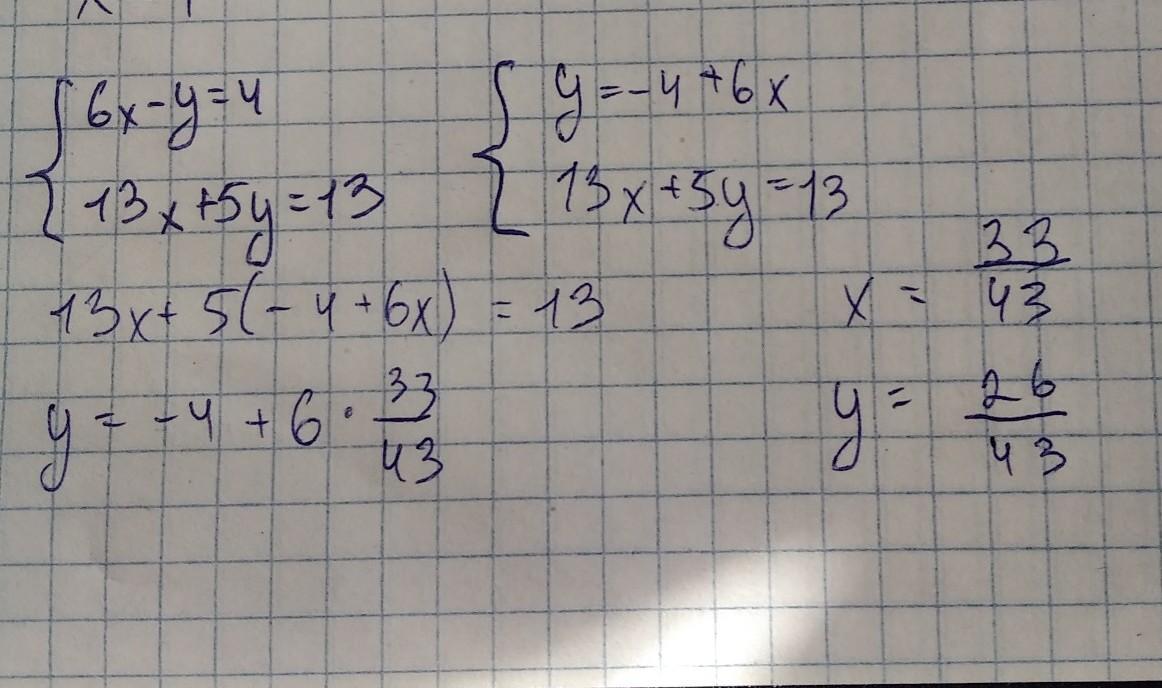 6x-y=4
13x+5y=13
y=-4+6x
13x+5y=13
13x+5(-4+6x)=13
x=33/43
y=-4+6·33/43
y=26/43